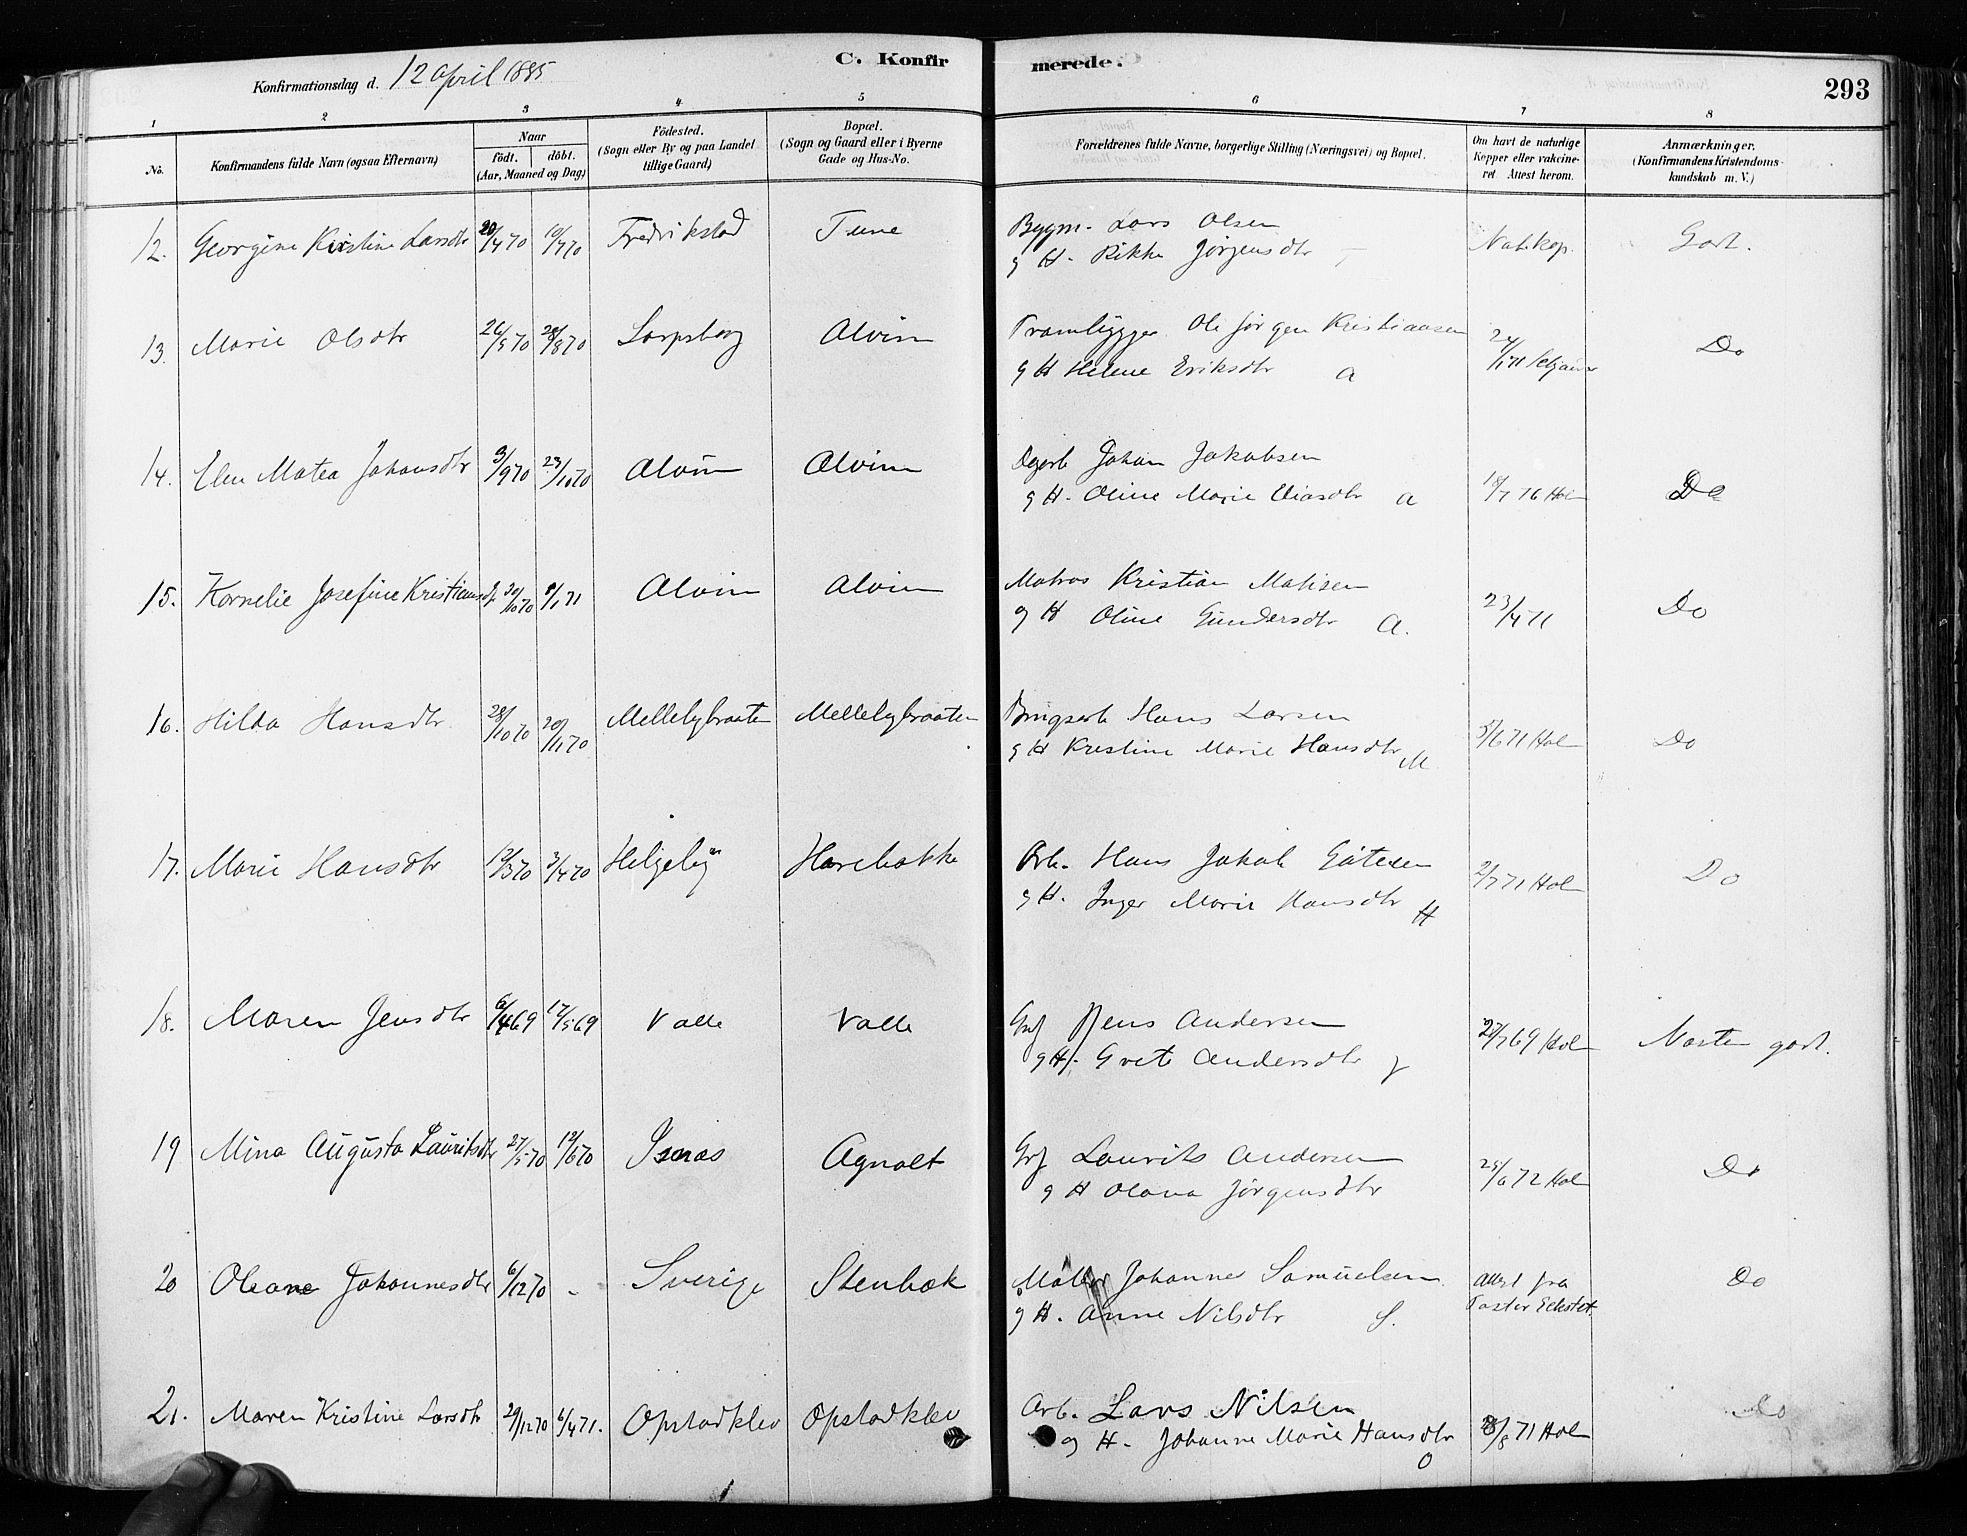 C. Konfirmerede. 293
Konfirmationsdag d. 12 April 1885
1 2 3 4 5 6 7 8
No. Konfirmandens fulde Navn (ogsaa Efternavn) Naar födt. döbt. (Aar, Maaned og Dag) Födested. (Sogn eller By og paa Landet tillige Gaard) Bopæl. (Sogn og Gaard eller i Byerne Gade og Hus-No. Forældrenes fulde Navne, borgerlige Stilling (Næringsvei) og Bopæl. Om havt de naturlige Kopper eller vakcineret. Attest herom. Anmærkninger. (Konfirmandens Kristendomskundskab m. V.)
12. Georgine Kristine Larsdtr 20/4 70 10/7 70 Fredrikstad Tune Bygm. Lars Olsen Nat. kop. Godt.
g H. Rikke Jørgensdtr T
13. Marie Olsdtr 26/5 70 28/8 70 Sarpsborg Alvim Ole Jørgen Kristiansen Do
g H Helene Eriksdtr A
14. Elen Matea Johansdtr 3/9 70 23/10 70 Alvim Alvim Johan Jakobsen 18/7 76 Hol Do
g H. Oline Marie Eliasdtr A
15. Kornelie Josefine Kristiansd. 30/10 70 8/1 71 Alvim Alvim Matros Kristian Matisen 23/4 71 Do
g H Oline Gundersdtr A.
16. Hilda Hansdtr. 28/10 70 20/11 70 Mellebybraaten Mellebybraaten Brugsarb Hans Larsen 5/6 71 Hol Do
g H Kristine Marie Hansdtr M
17. Marie Hansdtr 12/3 70 3/4 70 Helgeby Harebakke Arb. Hans Jakob 2/7 71 Hol Do
g H. Inger Marie Hansdtr H
18. Maren Jensdtr 6/4 69 17/5 69 Valle Valle Grf Jens Andersen 28/7 69 Hol Næsten godt.
g H. Grete Andersdtr
19 Mina Augusta Lauritsdtr 27/5 70 12/6 70 Isnæs Agnalt Grf Laurits Andersen 25/6 72 Hol Do
g H Olava Jørgensdtr
20 Oleane Johannesdtr 6/12 70 - Sverige Stenbæk Møller Johannes Samuelsen Attest fra Do
g H. Anne Nilsdtr S. Pastor Eckstet.
21. Maren Kristine Larsdtr 29/12 70 6/4 71. Opstadklev Opstadklev Arb. Lars Nilsen 28/8 71 Hol Do
og H. Johanne Marie Hansdtr O